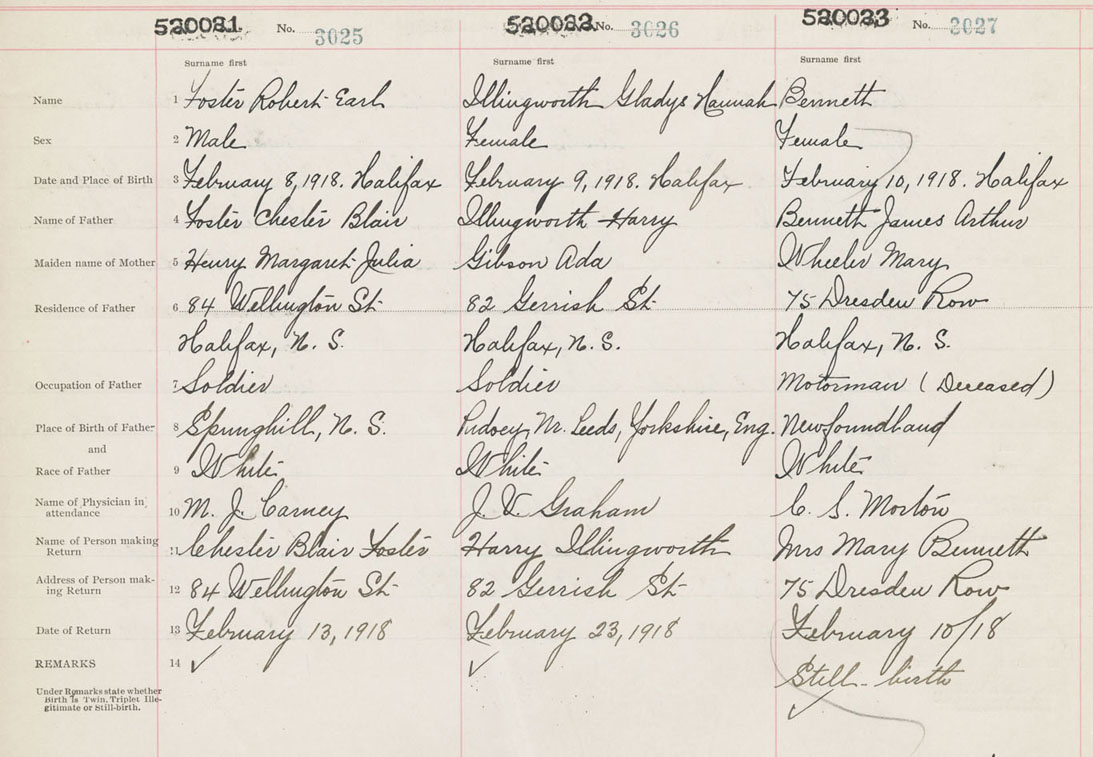 520081. No. 3025 520082. No. 3026 520083 No. 3027
Surname first Surname first Surname first
Name 1 Foster Robert Earl Illingworth Gladys Hannah Bennett
Sex 2 Male Female Female
Date and Place of Birth 3 February 8, 1918. Halifax February 9, 1918. Halifax February 10, 1918. Halifax
Name of Father 4 Foster Chester Blair Illingworth Harry Bennett James Arthur
Maiden name of Mother 5 Henry Margaret Julia Gibson Ada Wheeler Mary
Residence of Father 6 84 Wellington St 82 Gerrish St 75 Dresden Row
Halifax, N. S. Halifax, N. S. Halifax, N. S.
Occupation of Father 7 Soldier Soldier Motorman (Deceased)
Place of Birth of Father 8 Springhill, N. S. Nr. Leeds, Yorkshire, Eng. Newfoundland
and
Race of Father 9 White White White
Name of Physician in
attendance 10 M. J. Carney J. V. Graham C. S. Morton
Name of Person making
Return 11 Chester Blair Foster Harry Illingworth Mrs Mary Bennett
Address of Person mak-
ing Return 12 84 Wellington St 82 Gerrish St 75 Dresden Row
Date of Return 13 February 13, 1918 February 23, 1918 February 10/18
REMARKS 14 ✓ ✓ Still-birth
✓
Under Remarks state whether
Birth is Twin, Triplet Ille-
gitimate or Still-birth.